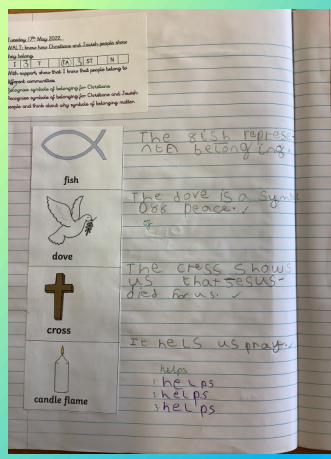 Tuesday 17th May 2022.
WALT: know how Christians and Jewish people show
they belong.
I 3 T (TA) 3 ST N
With support, show that I know that people belong to
different communities.
Recognise symbols of belonging for Christians
Recognise symbols of belonging for Christians and Jewish
people and think about why symbols of belonging matter.
The fish repres-
belonging.
fish
The dove is a symb
Off peace.
dove
The cress shows
us that Jesus-
died for us.
cross
It hels us pray.
helps
helps
helps
helps
candle flame